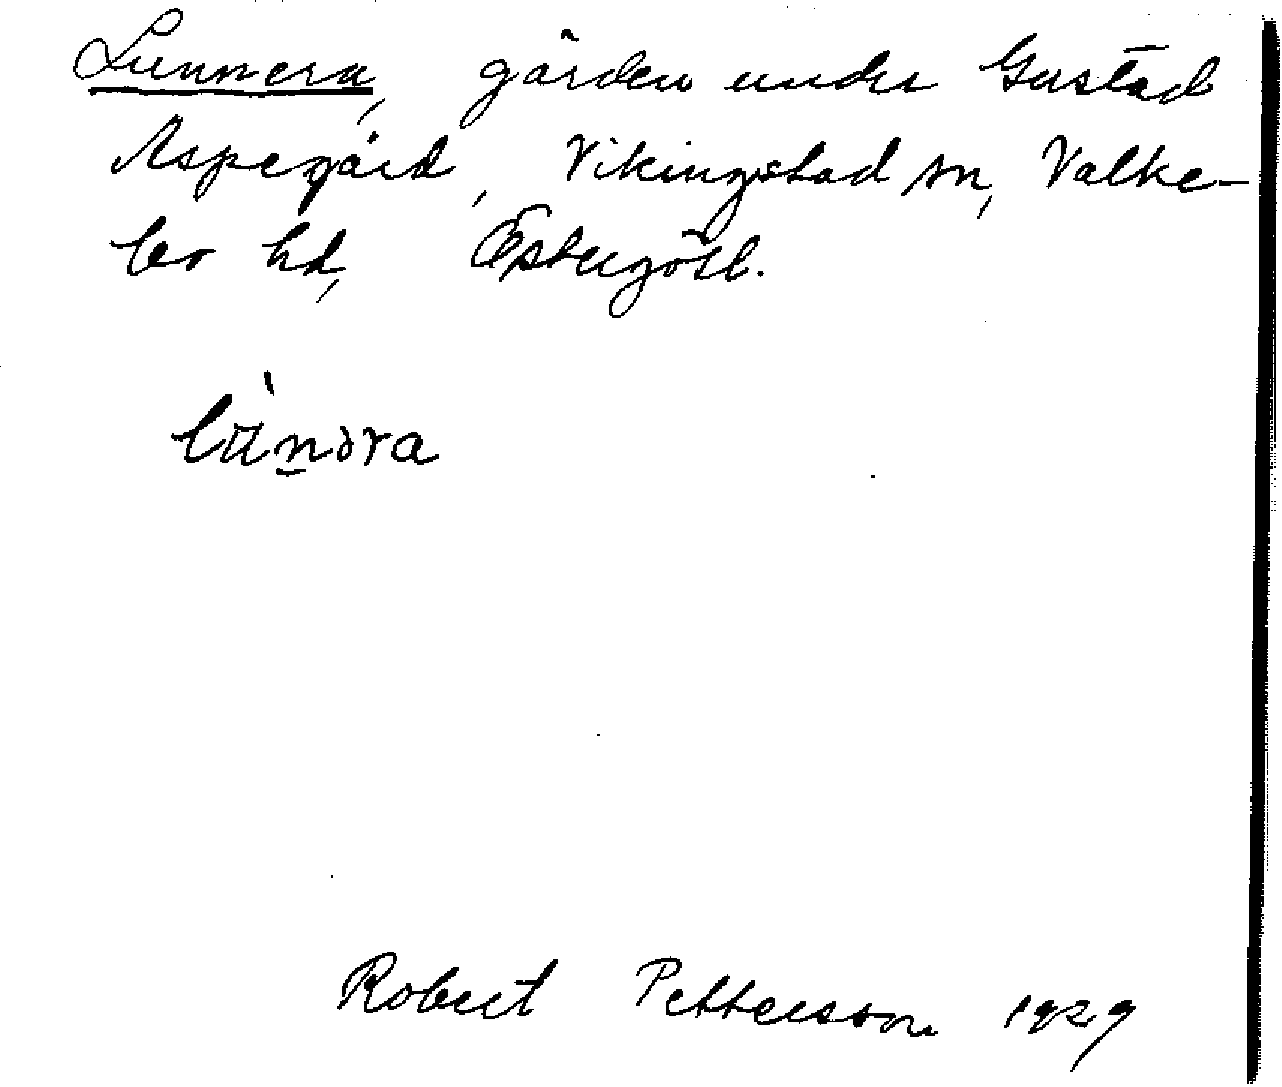 Lunnera, gärden under Gustad
Aspegård, Vikingstad sn, Valke-
bo hd, Östergötl.
Robert Pettersson 1929